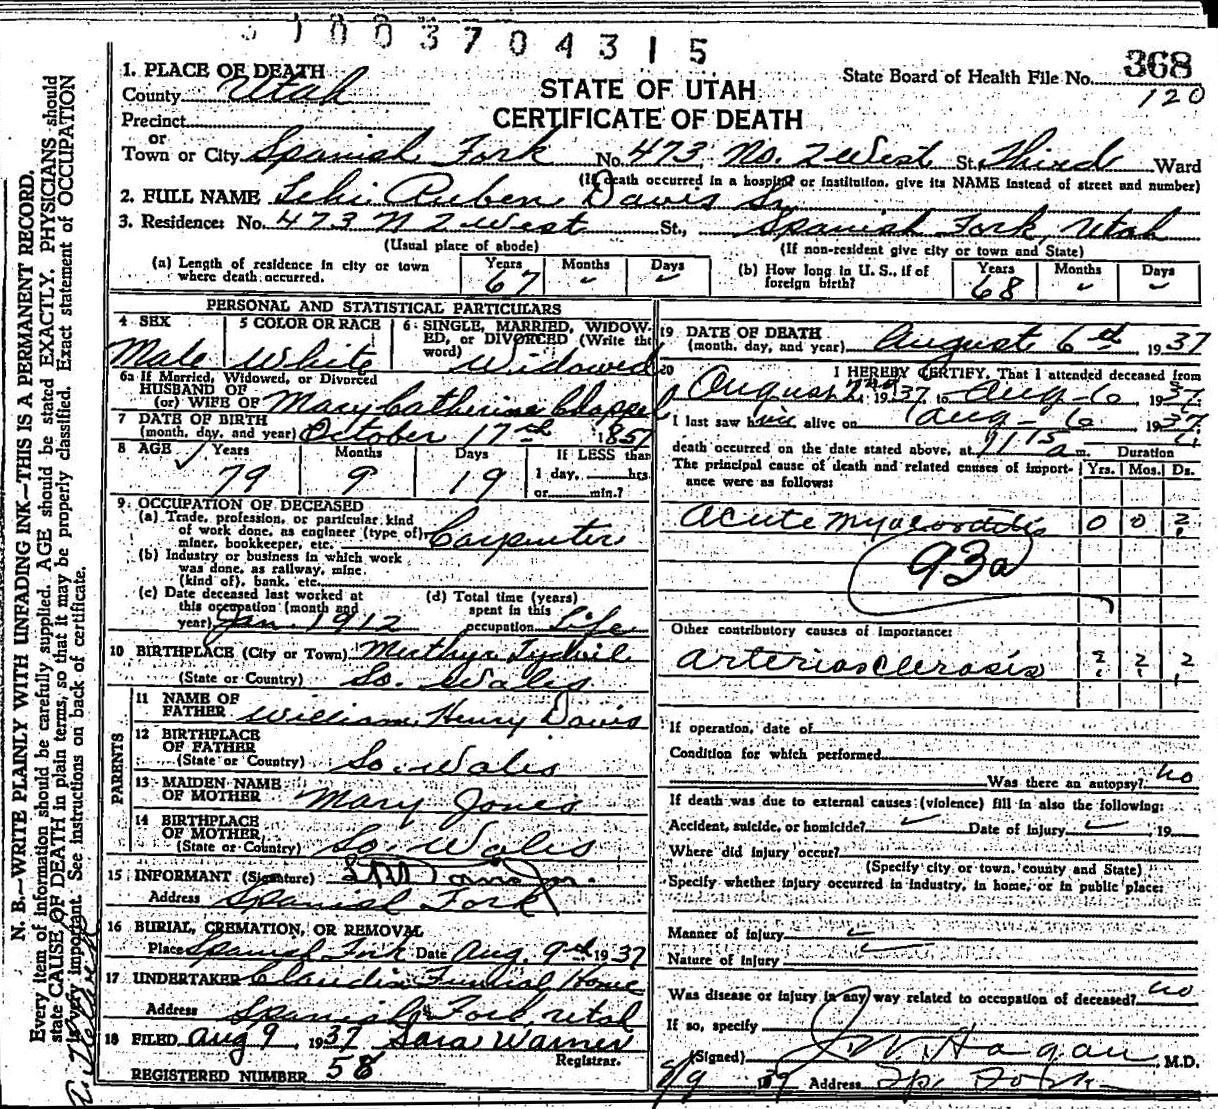 31003704315
368
State Board of Health File No.
120
STATE OF UTAH
CERTIFICATE OF DEATH
1. PLACE OF DEATH
County Utah
Precinct
or
Town or City Spanish Fork No. 473 No. 2 West St. Third Ward
(If death occurred in a hospital or institution, give its NAME instead of street and number)
2. FULL NAME Lehi Reuben Davis Sr
3. Residence: No. 473 N 2 West St., Spanish Fork, Utah
(Usual place of abode) (If non-resident give city or town and State)
(a) Length of residence in city or town where death occurred. Years 67 Months " Days "
(b) How long in U. S., if of foreign birth? Years 68 Months " Days "
PERSONAL AND STATISTICAL PARTICULARS
4 SEX Male
5 COLOR OR RACE White
6 SINGLE, MARRIED, WIDOWED, or DIVORCED (Write the word) Widowed
6a If Married, Widowed, or Divorced
HUSBAND OF
(or) WIFE OF Mary Catherine Chappel
7 DATE OF BIRTH
(month, day, and year) October 17th 1857
8 AGE Years 79 Months 9 Days 19 If LESS than
1 day, hrs.
or min.?
9. OCCUPATION OF DECEASED
(a) Trade, profession, or particular kind
of work done, as engineer (type of)
miner, bookkeeper, etc. Carpenter
(b) Industry or business in which work
was done, as railway, mine
(kind of), bank, etc.
(c) Date deceased last worked at
this occupation (month and
year) Jan. 1912
(d) Total time (years)
spent in this
occupation Life
10 BIRTHPLACE (City or Town) Merthyr Tydvil
(State or Country) So. Wales
PARENTS
11 NAME OF
FATHER William Henry Davis
12 BIRTHPLACE
OF FATHER
(State or Country) So. Wales
13 MAIDEN NAME
OF MOTHER Mary Jones
14 BIRTHPLACE
OF MOTHER
(State or Country) So. Wales
15 INFORMANT (Signature)
Address Spanish Fork
16 BURIAL, CREMATION, OR REMOVAL
Place Spanish Fork Date Aug. 9th 1937
17 UNDERTAKER Claudin Funeral Home
Address Spanish Fork Utah
18 FILED Aug 9, 1937 Sara Warner
Registrar.
REGISTERED NUMBER 58
19 DATE OF DEATH
(month, day, and year) August 6th, 1937
20 I HEREBY CERTIFY, That I attended deceased from
August 2nd 1937 to Aug-6, 1937
I last saw him alive on Aug-6 1937
death occurred on the date stated above, at 11 15 a m. Duration
The principal cause of death and related causes of importance were as follows: Yrs. Mos. Ds.
Acute Myocarditis 0 0 2
93a
Other contributory causes of importance:
Arteriosclerosis ? ? ?
If operation, date of
Condition for which performed
Was there an autopsy? no
If death was due to external causes (violence) fill in also the following:
Accident, suicide, or homicide? Date of injury , 19
Where did injury occur?
(Specify city or town, county and State)
Specify whether injury occurred in industry, in home, or in public place:
Manner of injury
Nature of injury
Was disease or injury in any way related to occupation of deceased? no
If so, specify
(Signed) J. W. Hagan M.D.
8/9 1937 Address Sp. Fork
N. B.—WRITE PLAINLY WITH UNFADING INK—THIS IS A PERMANENT RECORD.
Every item of information should be carefully supplied. AGE should be stated EXACTLY. PHYSICIANS should
state CAUSE OF DEATH in plain terms, so that it may be properly classified. Exact statement of OCCUPATION
is very important. See instructions on back of certificate.